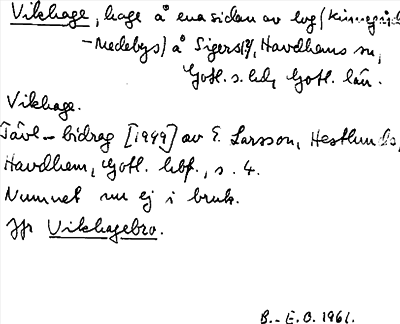 Vikhage, hage å ena sidan av vägen (Kinnegård
- Nedebys) å Sigers(?), Havdhems sn,
Gotl. s. hd, Gotl. län.
Vikhage.
Tävl-bidrag [1949] av E. Larsson, Hestlunds,
Havdhem, Gotl. hbf., s. 4.
Numnet nu ej i bruk.
Jfr Vikhagebro.
B.-E.O. 1961.